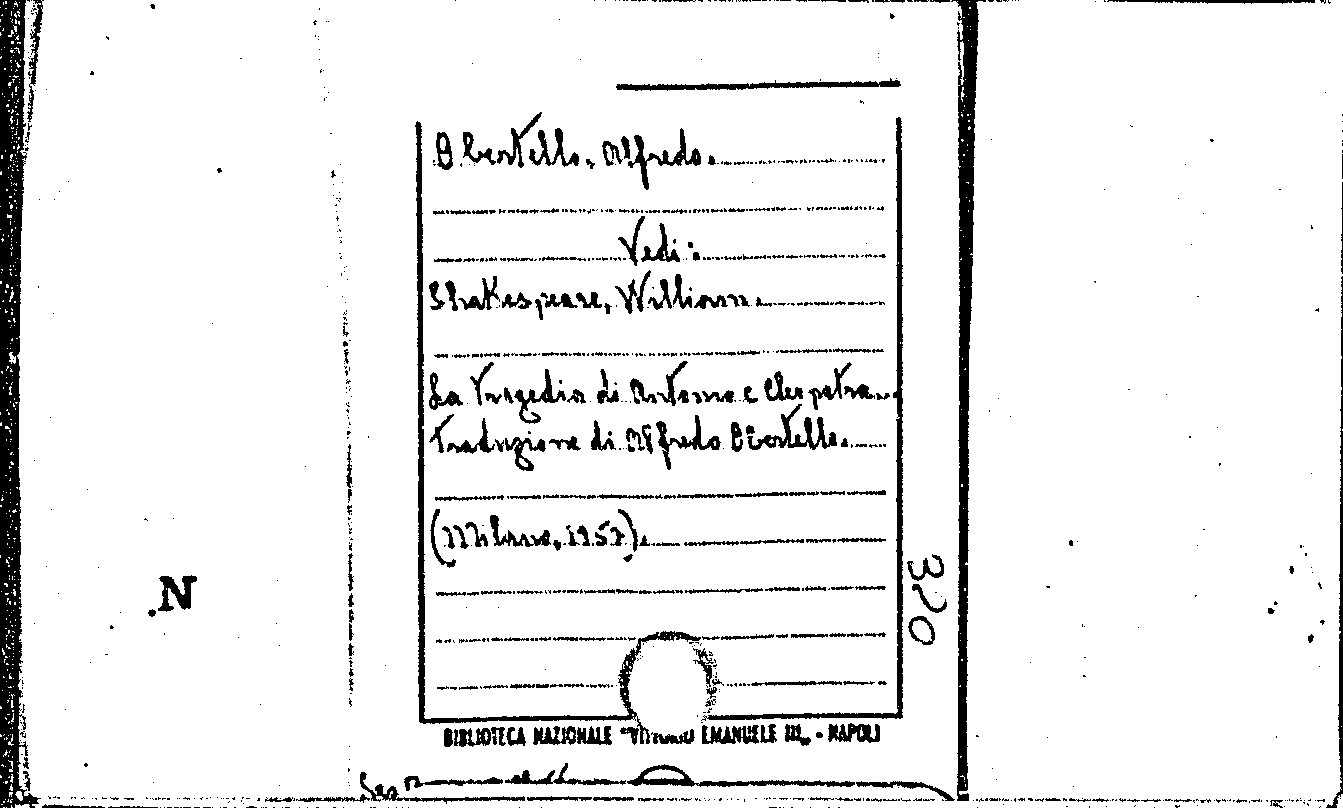 Obertello, Alfredo.
Vedi:
Shakespeare, William.
La Tragedia di Antonio e Cleopatra.
Traduzione di Alfredo Obertello.
(Milano, 1957).
320
N
BIBLIOTECA NAZIONALE "VITTORIO EMANUELE III" - NAPOLI